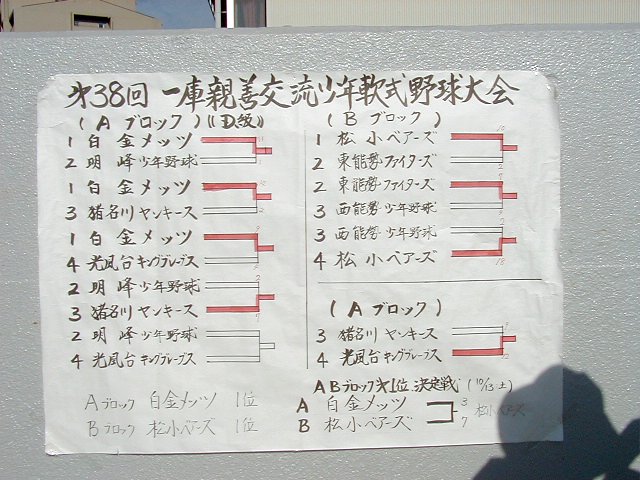 第38回 一庫親善交流少年軟式野球大会
(A ブロック)《D級》
1 白金メッツ
2 明峰少年野球
1 白金メッツ
3 猪名川ヤンキース
1 白金メッツ
4 光風台キングブレーブス
2 明峰少年野球
3 猪名川ヤンキース
2 明峰少年野球
4 光風台キングブレーブス
Aブロック 白金メッツ 1位
Bブロック 松小ベアーズ 1位
(B ブロック)
1 松小ベアーズ
2 東能勢ファイターズ
2 東能勢ファイターズ
3 西能勢少年野球
3 西能勢少年野球
4 松小ベアーズ
(A ブロック)
3 猪名川ヤンキース
4 光風台キングブレーブス
ABブロック第1位決定戦(10/13土)
A 白金メッツ 3
B 松小ベアーズ 7
松小ベアーズ